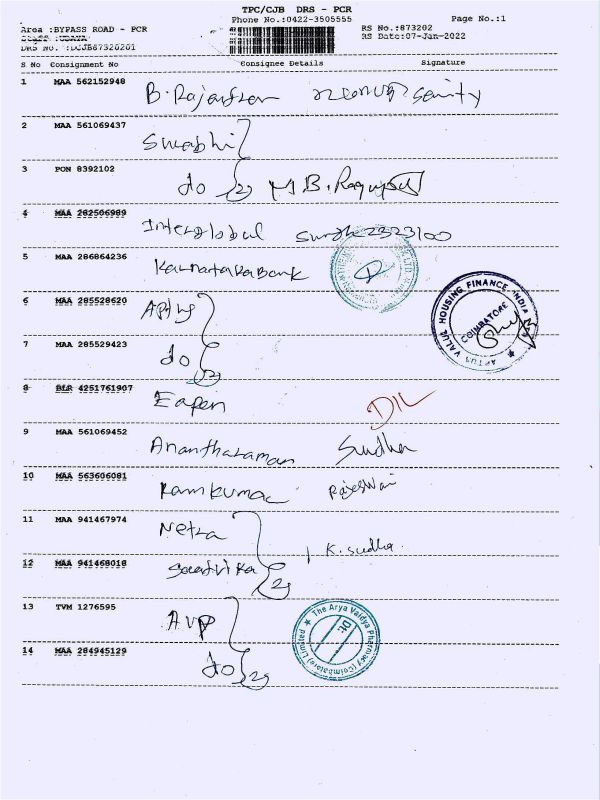 TPC/CJB DRS - PCR
Phone No.:0422-3505555
Page No.:1
Area :BYPASS ROAD - PCR
RS No.:873202
RS Date:07-Jan-2022
DRS No. :DCJB87320201
S No Consignment No Consignee Details Signature
1 MAA 562152948
B. Rajendran
2 MAA 561069437
Surabhi
3 PON 8392102
do (2) M B. Ragupati
4 MAA 282506989
Interglobal 2323100
5 MAA 286864236
Karnataka Bank
6 MAA 285528620
Aptus
APTUS VALUE HOUSING FINANCE INDIA
COIMBATORE
7 MAA 285529423
do (2)
8 BLR 4251761907
Eapen
DIL
9 MAA 561069452
Anantharaman Sudha
10 MAA 563606081
Ramkumar Rajeswari
11 MAA 941467974
Netra
K. Sudha.
12 MAA 941468018
Saatvika 2
13 TVM 1276595
AVP
The Arya Vaidya Pharmacy (Coimbatore) Limited
14 MAA 284945129
do 2